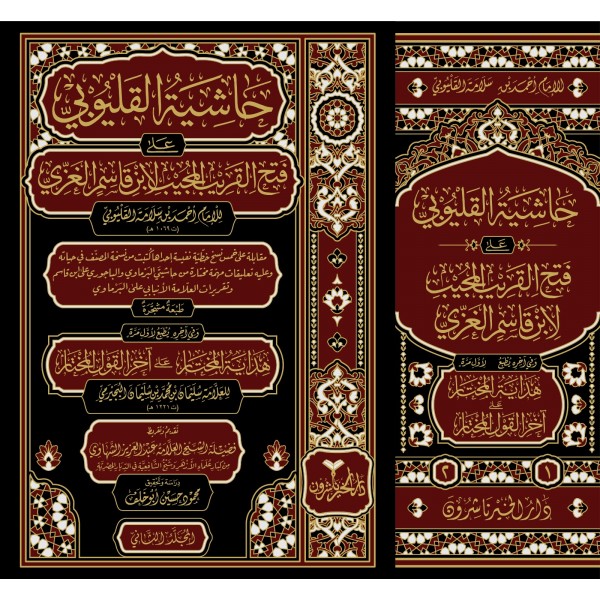 حاشية القليوبي
على
فتح القريب المجيب لابن قاسم الغزي
للإمام أحمد بن سلامة القليوبي
(ت ١٠٦٩ هـ)
مقابلة على خمس نسخ خطية نفيسة إحداها كتبت من نسخة المصنف في حياته
وعليه تعليقات مهمة مختارة من حاشيتي البرماوي والباجوري على ابن قاسم
وتقريرات العلامة الأنبابي على البرماوي
طبعة مشجرة
وفي آخره يطبع لأول مرة
هداية المحتار على آخر القول المختار
للعلامة سليمان بن محمد بن سليمان البجيرمي
(ت ١٢٢١ هـ)
تقديم وتقريظ
فضيلة الشيخ العلامة عبد العزيز الشهاوي
من كبار علماء الأزهر وشيخ الشافعية في الديار المصرية
دراسة وتحقيق
محمود حسين أبو خلف
المجلد الثاني
٢
دار الخير ناشرون
للإمام أحمد بن سلامة القليوبي
حاشية القليوبي
على
فتح القريب المجيب
لابن قاسم الغزي
وفي آخره يطبع لأول مرة
هداية المحتار
على
آخر القول المختار
١ ٢
دار الخير ناشرون